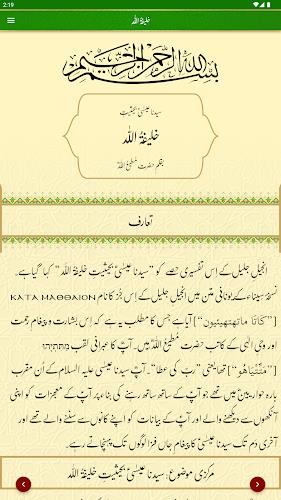 2:19
خلیفۃُ اللہ
بسم اللہ الرحمن الرحیم
سیدنا عیسیٰؑ بحیثیتِ
خلیفۃُ اللہ
بقلم حضرت مَطیعُ اللہؒ
تعارف
انجیل جلیل کے اِس تفسیری حصے کو ”سیدنا عیسیٰؑ بحیثیتِ خلیفۃُ اللہ“ کہا گیا ہے۔
نسخۂ سیناء کے یونانی متن میں انجیل جلیل کے اِس جُز کا نام KATA MAΘΘAION
[”کَاتَا ماتھتھیئون“] آیا ہے جس کا مطلب یہ ہے کہ اِس بشارت و پیغام رحمت
اور وحی الٰہی کے کاتب حضرت مَطیعُ اللہؒ ہیں۔ آپؒ کا عبرانی لقب מתתיהו
[”مَتِّتْیَاھُو“] تھا یعنی ”ربّ کی عطا“۔ آپؒ سیدنا عیسیٰ علیہ السلام کے اُن مقرب
بارہ حواریینؒ میں سے تھے جو آپؑ کے ساتھ ساتھ رہنے کی بنا پر آپؑ کے معجزات کو اپنی
آنکھوں سے دیکھنے والے اور آپؑ کے بیانات کو اپنے کانوں سے سننے والے تھے اور
آخری دم تک سیدنا عیسیٰؑ کا پیغام جاں فزا لوگوں تک پہنچاتے رہے۔
مرکزی موضوع: سیدنا عیسیٰؑ بحیثیتِ خلیفۃُ اللہ